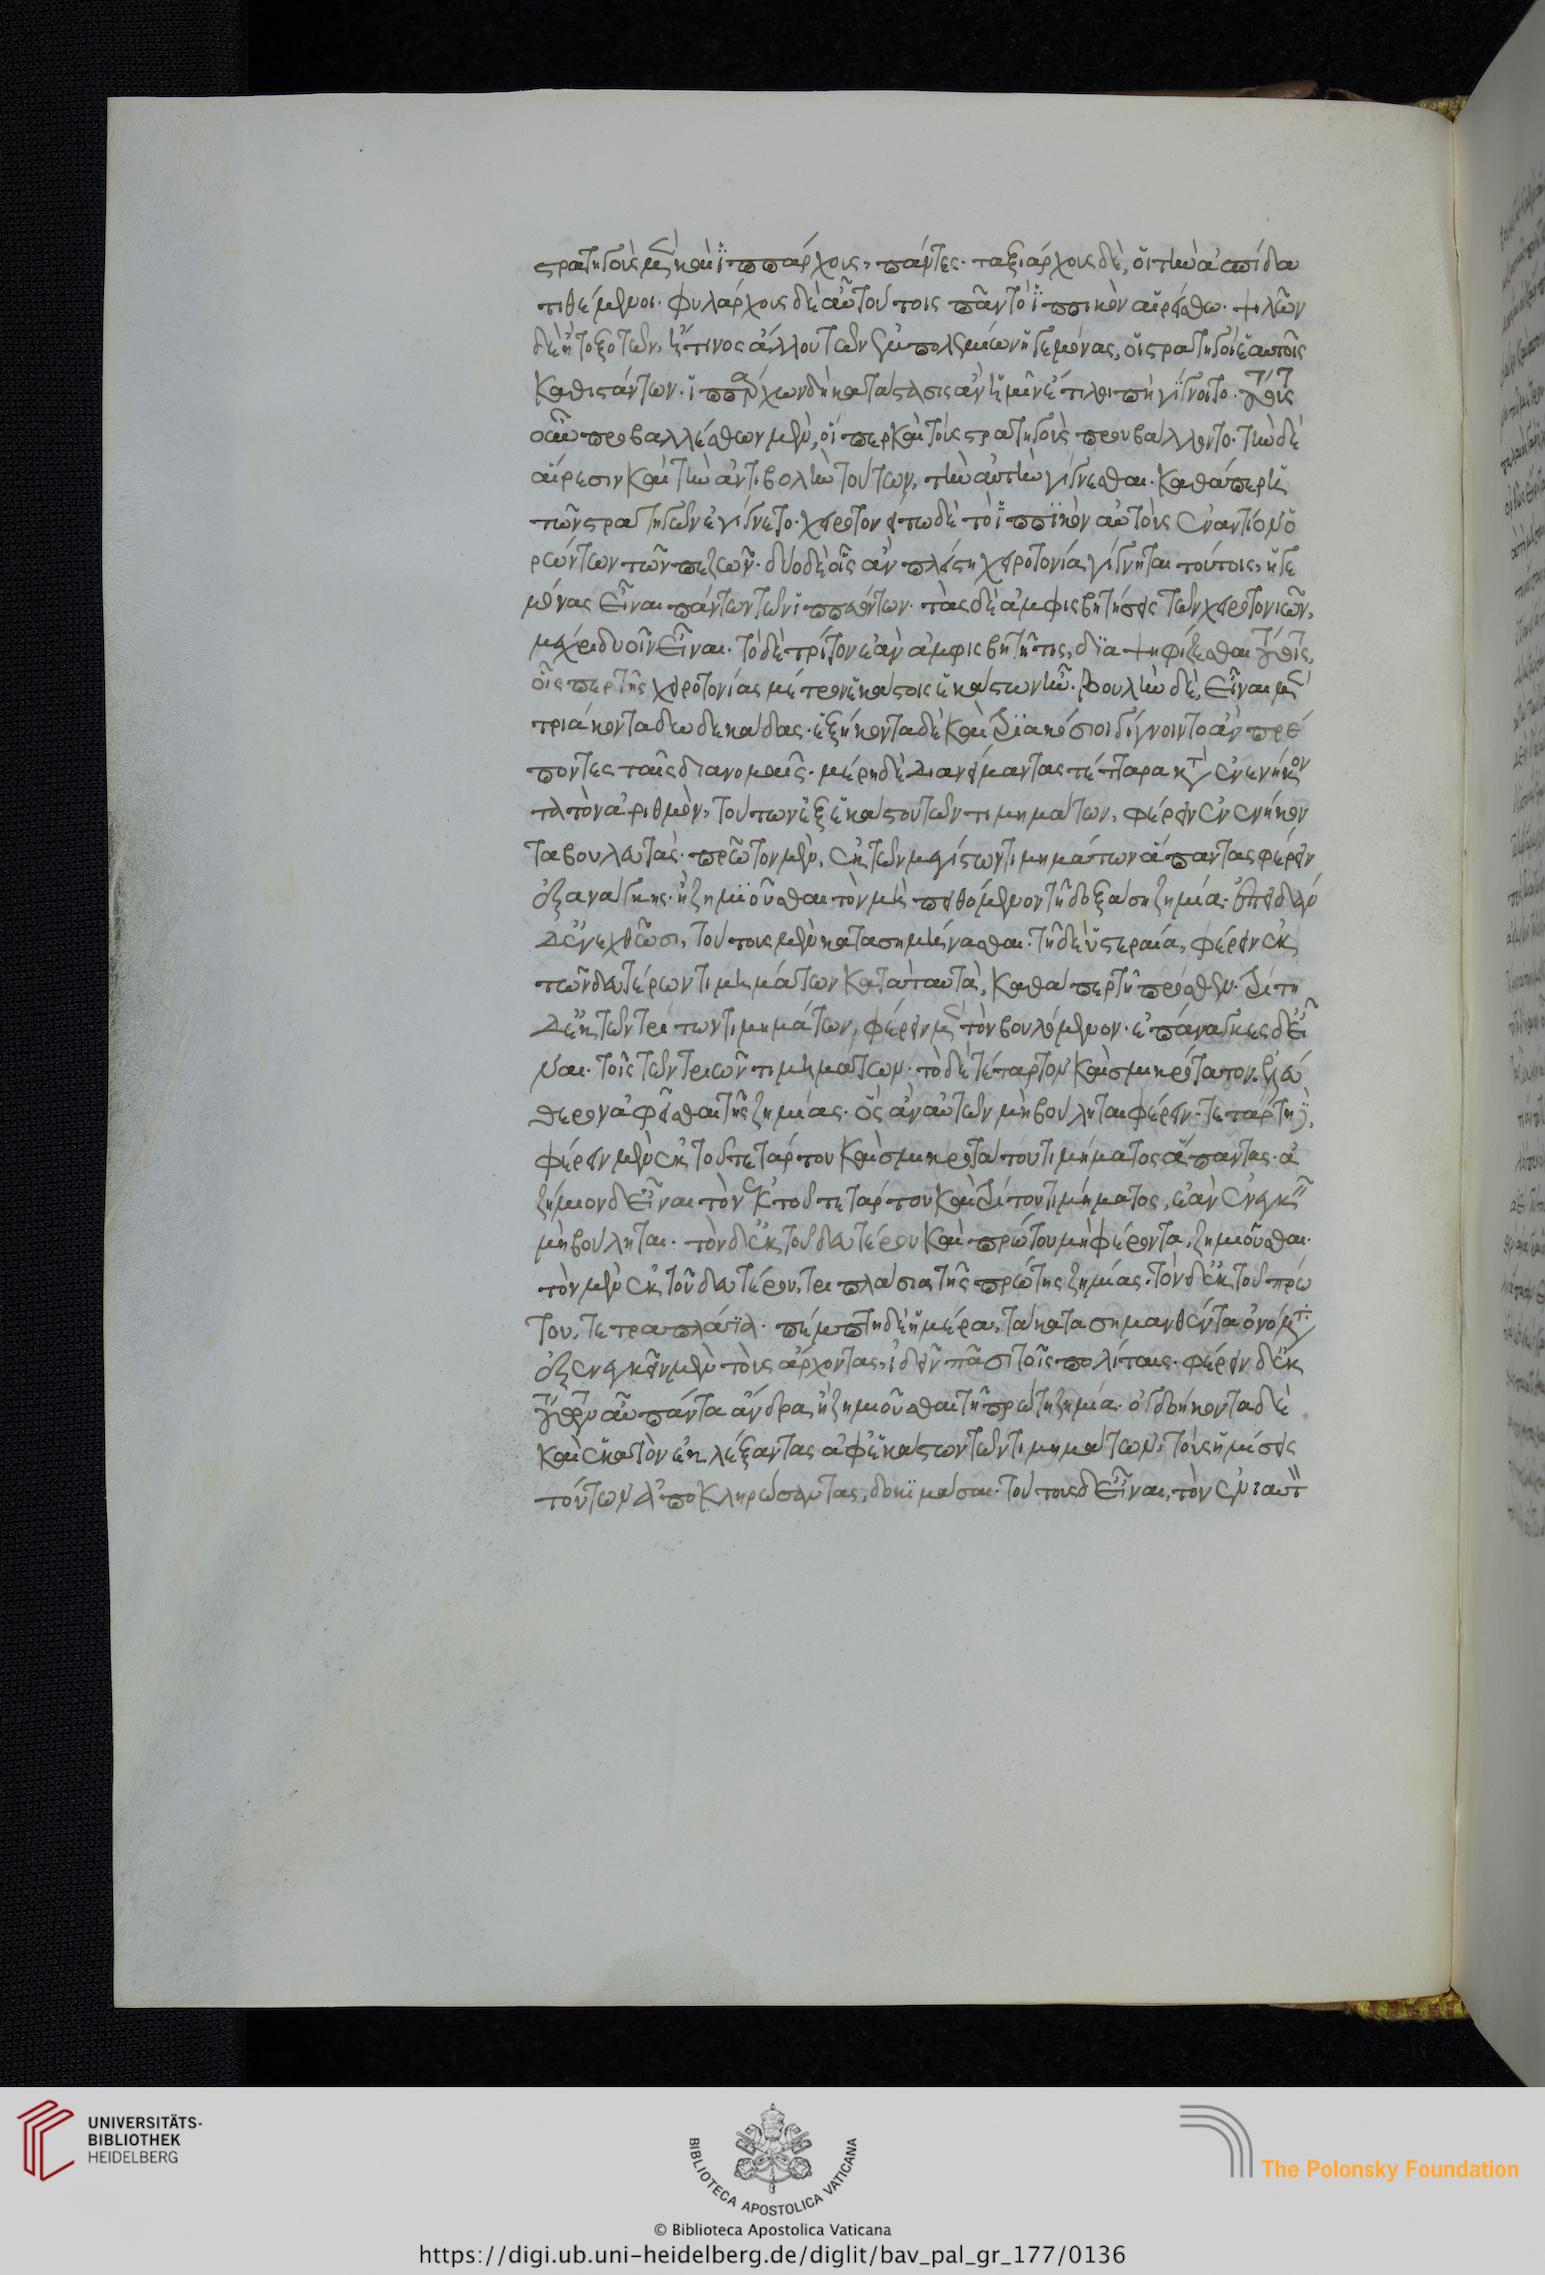 στρατηγοὺς μὲν καὶ ἱππάρχους, πάντες. ταξιάρχους δὲ, οἱ τὴν ἀσπίδα
τιθέμενοι. φυλάρχους δὲ αὖ τούτοις πᾶν τὸ ἱππικὸν αἱρείσθω. ψιλῶν
δὲ ἢ τοξοτῶν, ἤ τινος ἄλλου τῶν ἐμπολεμίων ἡγεμόνας, οἱ στρατηγοὶ ἑαυτοῖς
καθιστάντων. ἱππάρχων δὴ κατάστασις ἂν ἡμῖν ἔτι λοιπὴ γίγνοιτο. τούτους
οὖν προβαλλέσθων μὲν, οἵπερ καὶ τοὺς στρατηγοὺς προυβάλλοντο. τὴν δὲ
αἵρεσιν καὶ τὴν ἀντιβολὴν τούτων, τὴν αὐτὴν γίγνεσθαι. καθάπερ ἡ
τῶν στρατηγῶν ἐγίγνετο. χειροτονείτω δὲ τὸ ἱππϊκὸν αὐτοὺς ἐναντίον ὁ
ρώντων τῶν πεζῶν. δύο δὲ οἷς ἂν πλείστη χειροτονία γίγνηται τούτοις, ἡγε
μόνας εἶναι πάντων τῶν ἱππευόντων. τὰς δὲ ἀμφισβητήσεις τῶν χειροτονιῶν,
μέχρι δυοῖν εἶναι. τὸ δὲ τρίτον ἐὰν ἀμφισβητῇ τις, διαψηφίζεσθαι τούτοις,
οἷσπερ τῆς χειροτονίας μέτρον ἑκάστοις ἑκάστων ἦν. βουλὴν δὲ, εἶναι μὲν
τριάκοντα δωδεκάδας. ἑξήκοντα δὲ καὶ τριακόσιοι γίγνοιντο ἂν πρέ
ποντες ταῖς διανομαῖς. μέρη δὲ διανείμαντας τέτταρα κατὰ ἐνενήκον
τα τὸν ἀριθμὸν, τούτων ἐξ ἑκάστου τῶν τιμημάτων, φέρειν ἐνενήκον
τα βουλευτάς. πρῶτον μὲν, ἐκ τῶν μεγίστων τιμημάτων ἅπαντας φέρειν
ἐξ ἀνάγκης. ἢ ζημιοῦσθαι τὸν μὴ πειθόμενον τῇ δοξάσῃ ζημίᾳ. ἐπειδὰν
δ' ἐνεχθῶσι, τούτους μὲν κατασημήνασθαι. τῇ δὲ ὑστεραίᾳ, φέρειν ἐκ
τῶν δευτέρων τιμημάτων κατὰ ταυτὰ, καθάπερ τῇ πρόσθεν. τρίτῃ
δ' ἐκ τῶν τρίτων τιμημάτων, φέρειν μὲν τὸν βουλόμενον. ἐπάναγκες δ' εἶ
ναι. τοῖς τῶν τριῶν τιμημάτων. τὸ δὲ τέταρτον καὶ σμικρότατον, ἐλεύ
θερον ἀφεῖσθαι τῆς ζημίας. ὃς ἂν αὐτῶν μὴ βούληται φέρειν. τετάρτῃ δὲ,
φέρειν μὲν ἐκ τοῦ τετάρτου καὶ σμικροτάτου τιμήματος ἅπαντας. ἀ
ζήμιον δ' εἶναι τὸν ἐκ τοῦ τετάρτου καὶ τρίτου τιμήματος, ἐὰν ἐνεγκεῖν
μὴ βούληται. τὸν δ' ἐκ τοῦ δευτέρου καὶ πρώτου μὴ φέροντα, ζημιοῦσθαι.
τὸν μὲν ἐκ τοῦ δευτέρου, τριπλασία τῆς πρώτης ζημίας. τὸν δ' ἐκ τοῦ πρώ
του, τετραπλασία. πέμπτῃ δὲ ἡμέρᾳ, τὰ κατασημανθέντα ὀνόματα
ἐξενεγκεῖν μὲν τοὺς ἄρχοντας, ἰδεῖν πᾶσι τοῖς πολίταις. φέρειν δ' ἐκ
τούτων αὖ πάντα ἄνδρα, ἢ ζημιοῦσθαι τῇ πρώτῃ ζημίᾳ. ὀγδοήκοντα δὲ
καὶ ἑκατὸν ἐκλέξαντας ἀφ' ἑκάστων τῶν τιμημάτων, τοὺς ἡμίσεις
τούτων ἀποκληρώσαντας, δοκιμάσαι. τούτους δ' εἶναι, τὸν ἐνιαυτ
UNIVERSITÄTS-
BIBLIOTHEK
HEIDELBERG
BIBLIOTECA APOSTOLICA VATICANA
The Polonsky Foundation
© Biblioteca Apostolica Vaticana
https://digi.ub.uni-heidelberg.de/diglit/bav_pal_gr_177/0136